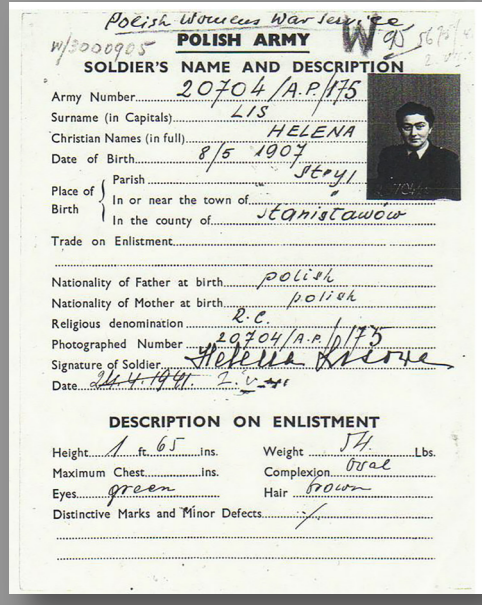 Polish Womens War Service
W/3000905
POLISH ARMY
W 95
SOLDIER'S NAME AND DESCRIPTION
Army Number 20704/A.P./175
Surname (in Capitals) LIS
Christian Names (in full) HELENA
Date of Birth 8/5 1907
Place of Birth
Parish Stryj
In or near the town of
In the county of Stanisławów
Trade on Enlistment
Nationality of Father at birth polish
Nationality of Mother at birth polish
Religious denomination R.C.
Photographed Number 20704/A.P./175
Signature of Soldier Helena
Date 24.4.1941.
DESCRIPTION ON ENLISTMENT
Height 1 ft. 65 ins. Weight 54. Lbs.
Maximum Chest ins. Complexion oval
Eyes green Hair brown
Distinctive Marks and Minor Defects /